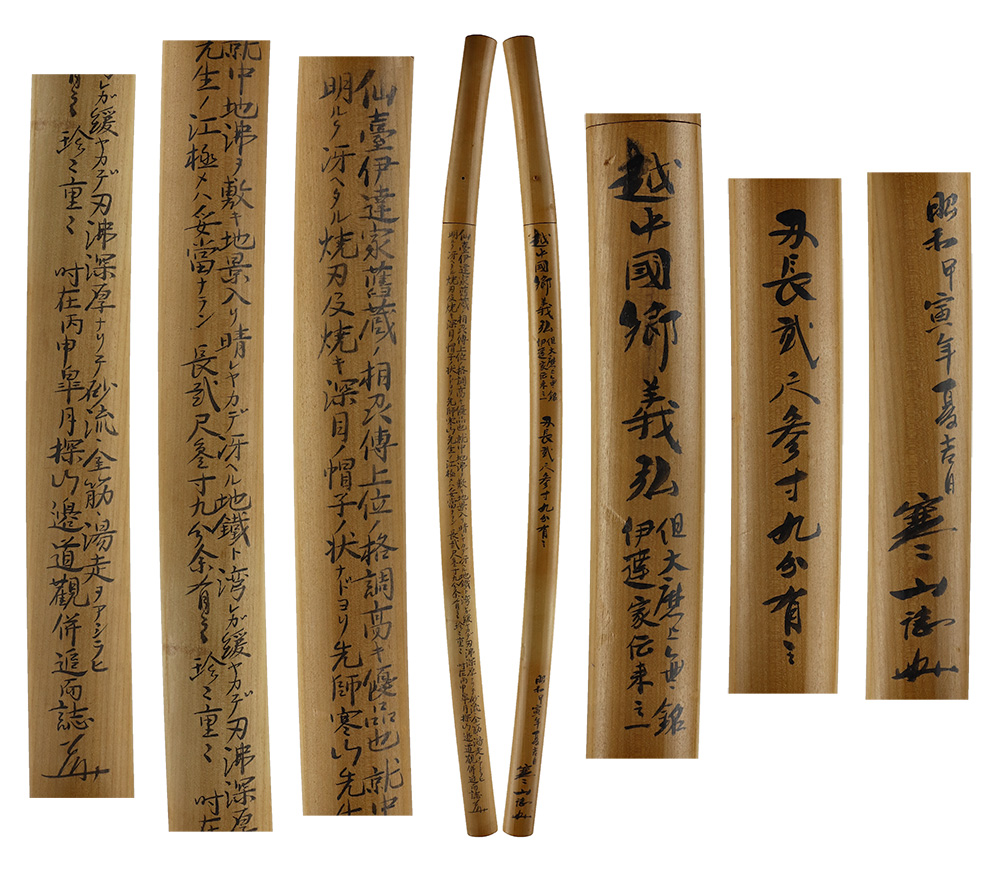 越中國郷義弘
但大磨上無銘
伊達家伝来之一
刃長弐尺参寸九分有之
昭和甲寅年夏吉日
寒山誌
仙臺伊達家舊蔵ノ相刕傳上位ノ格調高キ優品也就中
明ルク冴ヘタル焼刃及焼キ深目ノ帽子ノ状ナドヨリ先師寒山先生
就中地沸ヲ敷キ地景入リ晴レヤカデ冴ヘル地鐵ト湾レガ緩ヤカデ刃沸深厚
先生ノ江極メハ妥當ナラン 長弐尺参寸九分余有之 珍々重々 吋在
レガ緩ヤカデ刃沸深厚ナリテ砂流シ金筋湯走ヲアシラヒ
有之 珍々重々 吋在丙申皐月探山邉道觀併追而誌